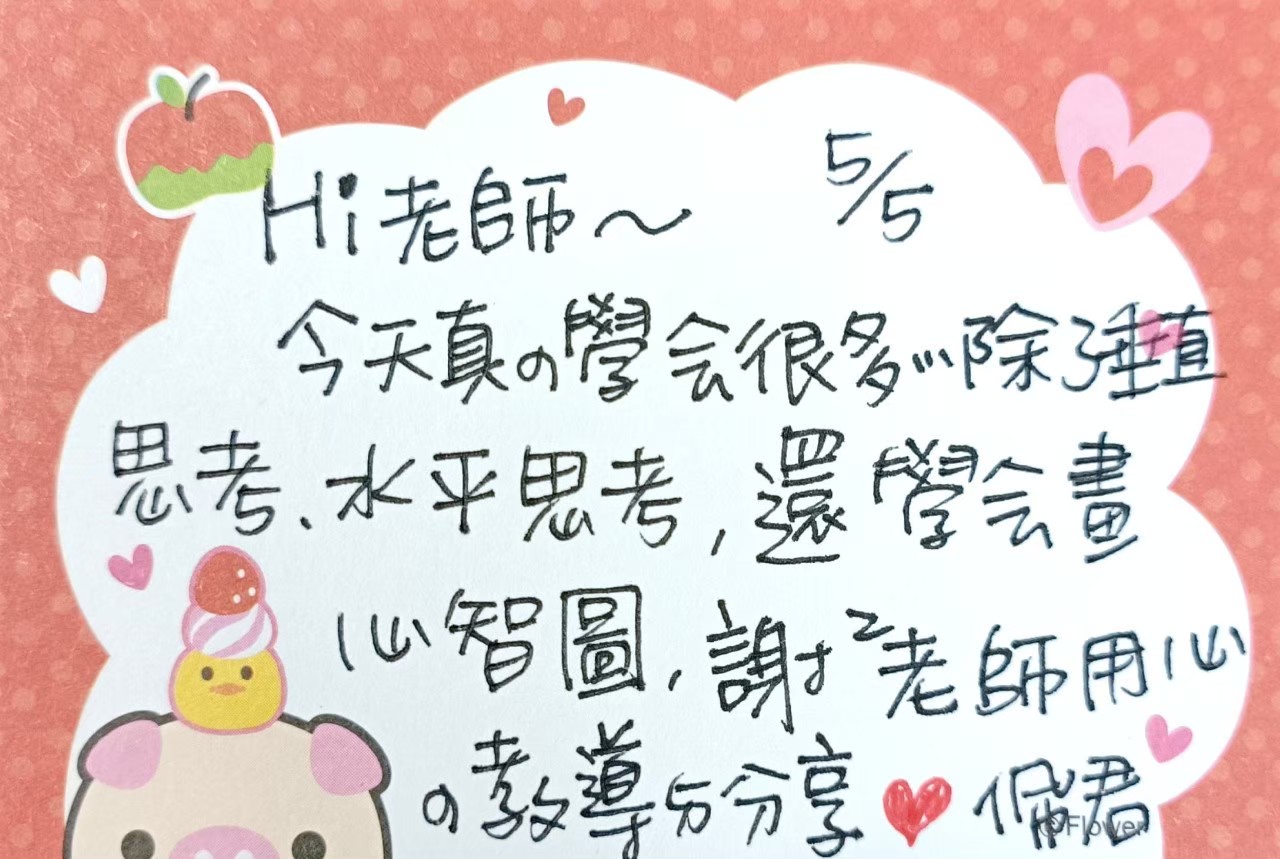 Hi老師～ 5/5
今天真の學会很多...除了垂直
思考、水平思考,還學会畫
心智圖,謝²老師用心
の教導与分享❤ 佩君
©Flower